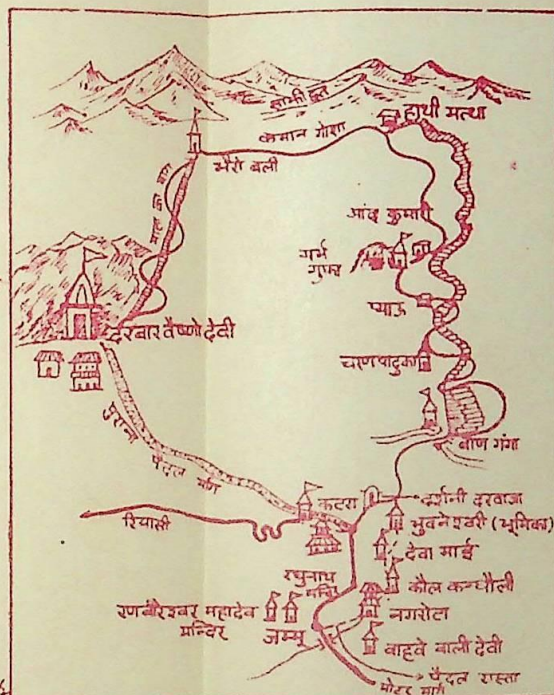 सांझी छत
हाथी मत्था
कमान गोशा
भैरो बली
आद कुमारी
गर्भ
गुफा
प्याऊ
दरबार वैष्णो देवी
चरण पादुका
बाण गंगा
पुराना पैदल मार्ग
कटरा
दर्शनी दरवाजा
रियासी
भुवनेश्वरी (भूमिका)
देवा माई
रघुनाथ
मन्दिर
कौल कन्धौली
रणबीरेश्वर महादेव
मन्दिर
नगरोटा
जम्मू
बाहवे वाली देवी
पैदल रास्ता
मोटर मार्ग